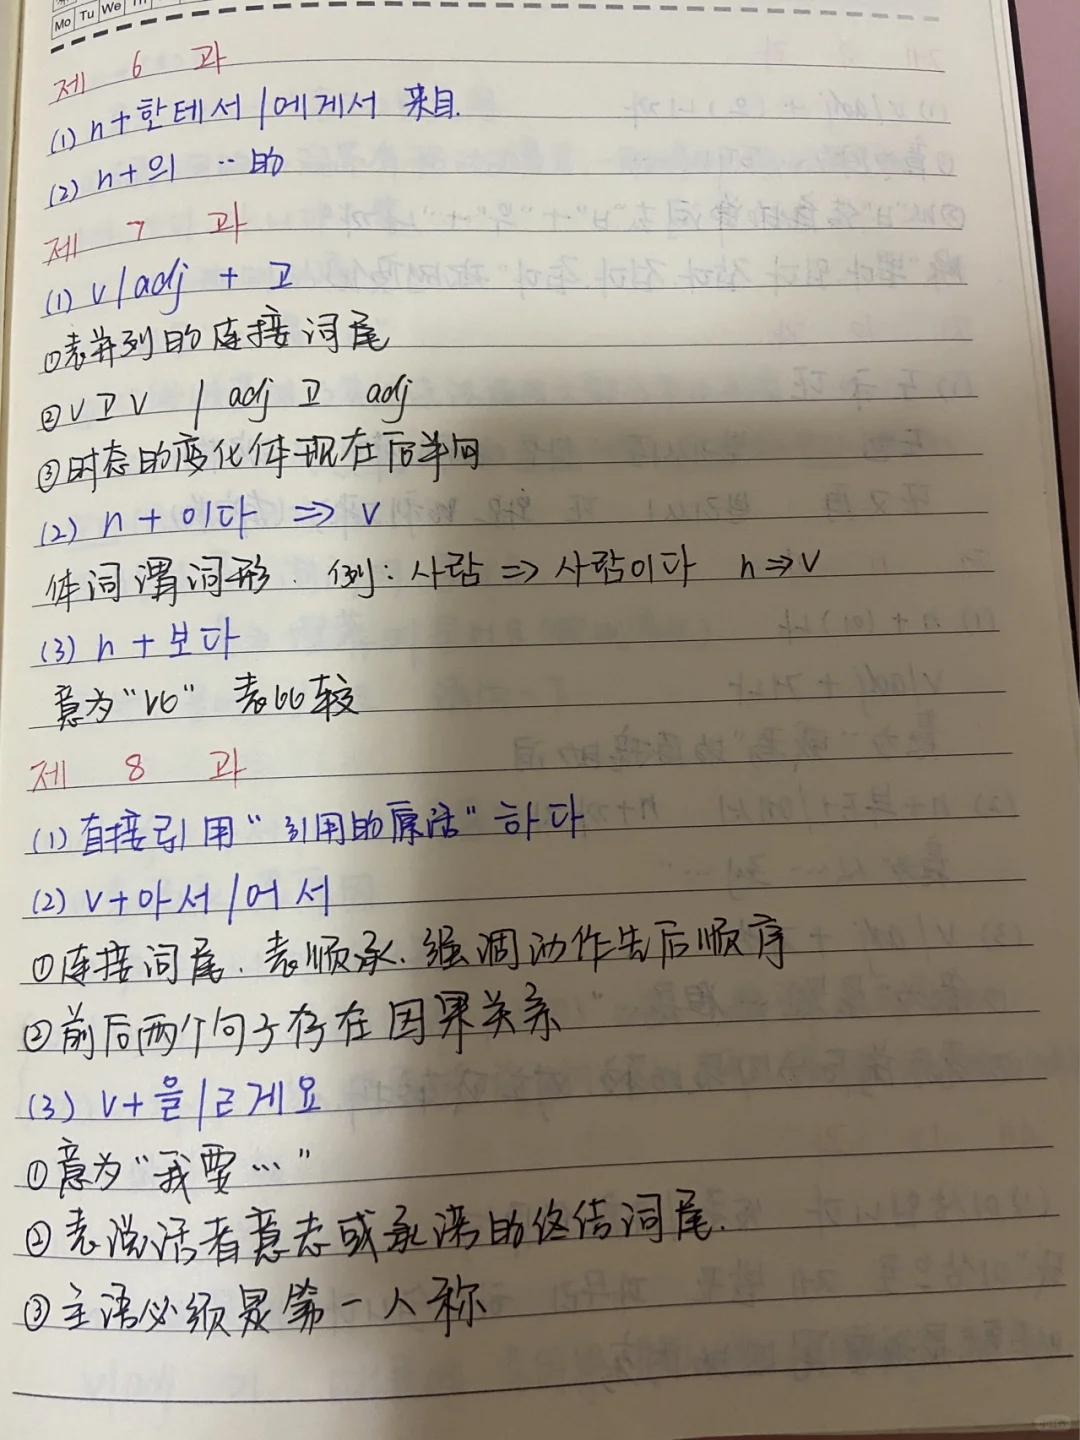 Mo Tu We
제 6 과
(1) n+한테서/에게서 来自.
(2) n+의 …的
제 7 과
(1) v/adj + 고
①表并列的连接词尾
②v고v / adj 고 adj
③时态的变化体现在后半句
(2) n+이다 ⇒ v
体词谓词形. 例: 사람 ⇒ 사람이다 n⇒v
(3) n+보다
意为“比” 表比较
제 8 과
(1)直接引用“引用的原话”하다
(2) v+아서/어서
①连接词尾、表顺承.强调动作先后顺序
②前后两个句子存在因果关系
(3) v+을/ㄹ게요
①意为“我要…”
②表说话者意志或承诺的终结词尾.
③主语必须是第一人称